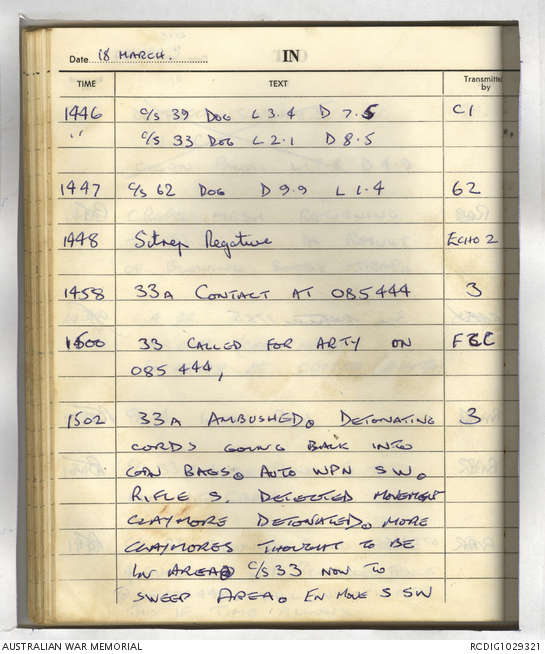 Date 18 MARCH. IN
TIME TEXT Transmitted by
1446 C/S 39 DOG L 3.4 D 7.5 C1
" C/S 33 DOG L 2.1 D 8.5
1447 C/S 62 DOG D 9.9 L 1.4 62
1448 Sitrep Negative ECHO 2
1458 33A CONTACT AT 085444 3
1500 33 CALLED FOR ARTY ON
085 444,
1502 33A AMBUSHED. DETONATING 3
CORDS GOING BACK INTO
BAGS. AUTO WPN SW.
RIFLE S. DETECTED MOVEMENT
CLAYMORE DETONATED. MORE
CLAYMORES THOUGHT TO BE
IN AREA C/S 33 NOW TO
SWEEP AREA. EN MOVE S SW
AUSTRALIAN WAR MEMORIAL RCDIG1029321